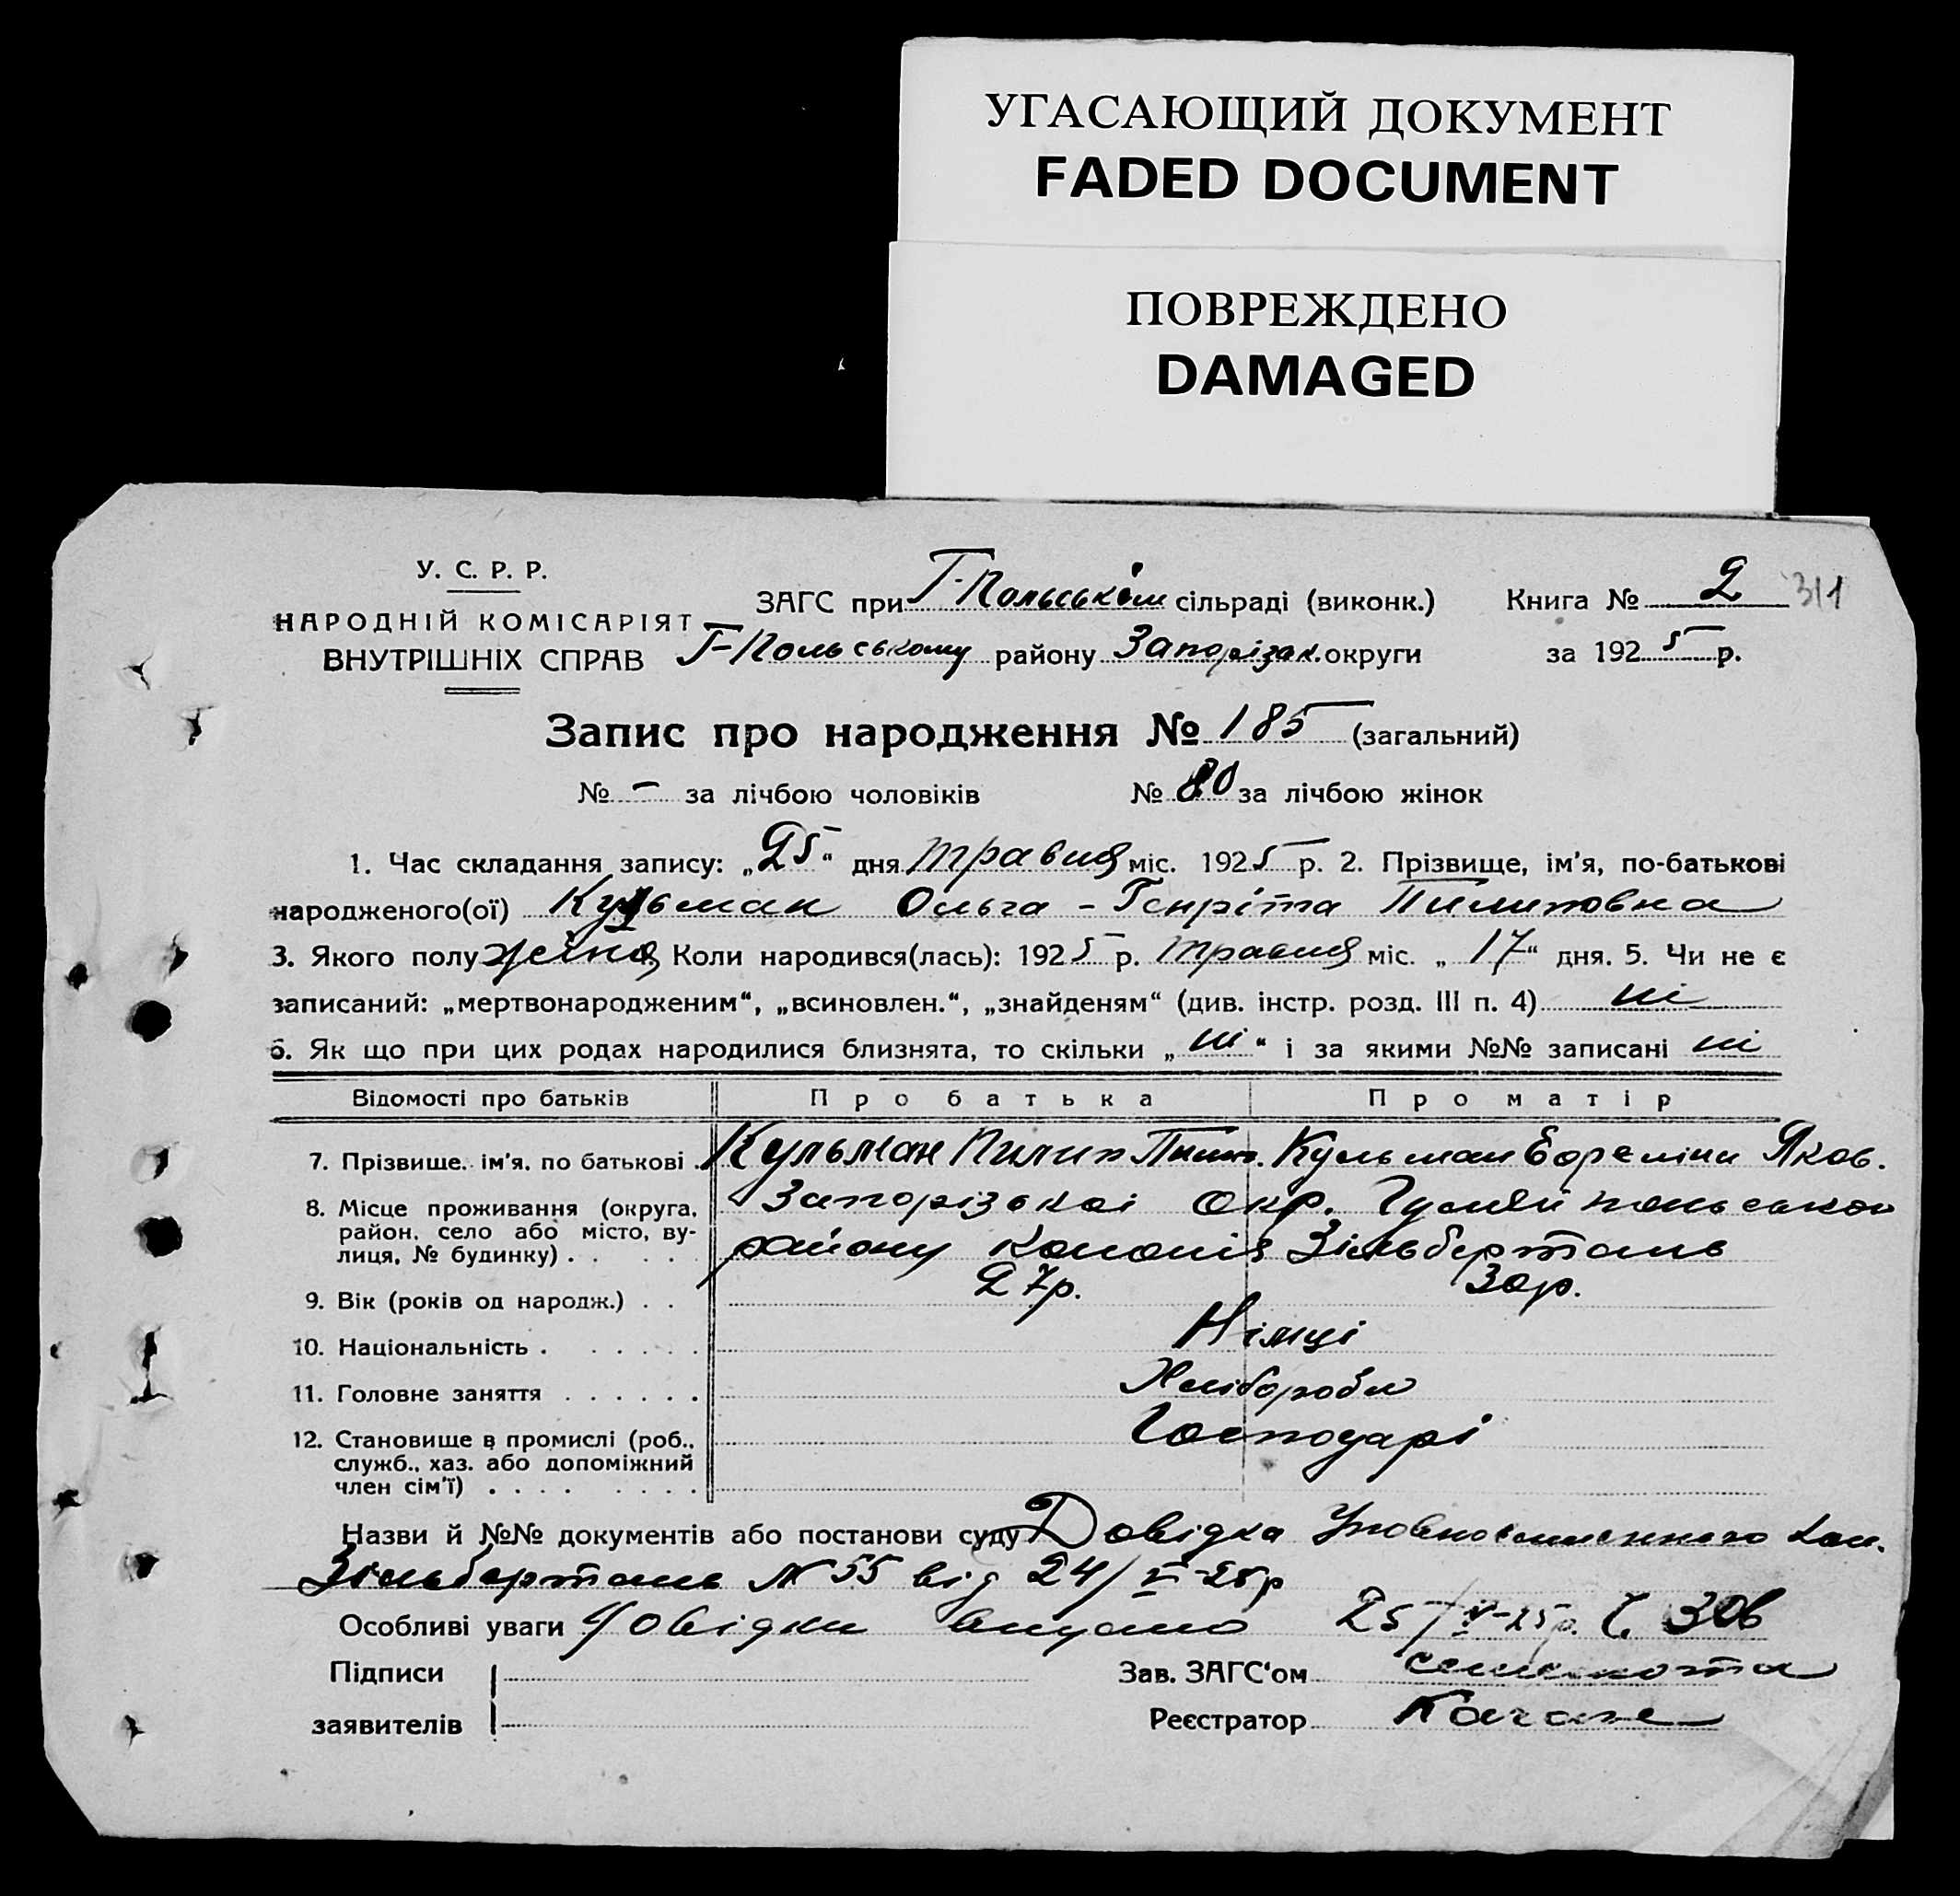 УГАСАЮЩИЙ ДОКУМЕНТ
FADED DOCUMENT
ПОВРЕЖДЕНО
DAMAGED
У. С. Р. Р.
НАРОДНІЙ КОМІСАРІЯТ
ВНУТРІШНІХ СПРАВ
ЗАГС при Г-Польськім сільраді (виконк.)
Г-Польському району Запорізьк. округи
Книга № 2 311
за 1925 р.
Запис про народження № 185 (загальний)
№ - за лічбою чоловіків № 80 за лічбою жінок
1. Час складання запису: „25“ дня травня міс. 1925 р. 2. Прізвище, ім'я, по-батькові
народженого(ої) Кульман Ольга - Генріта Пилиповна
3. Якого полу жіно, Коли народився(лась): 1925 р. травня міс. „17“ дня. 5. Чи не є
записаний: „мертвонародженим“, „всиновлен.“, „знайденям“ (див. інстр. розд. III п. 4) ні
6. Як що при цих родах народилися близнята, то скільки „ні“ і за якими №№ записані ні
Відомості про батьків Про батька Про матір
7. Прізвище, ім'я, по батькові Кульман Пилип Пилип. Кульман Яков.
8. Місце проживання (округа, район, село або місто, вулиця, № будинку) . . . . Запорізької окр. Гуляйпольського
району колонія Зільберталь
9. Вік (років од народж.) . . 27р. 30р.
10. Національність . . . . . . Німці
11. Головне заняття . . . . . . Хлібороби
12. Становище в промислі (роб., Господарі
служб., хаз. або допоміжний
член сім'ї) . . . . . . . .
Назви й №№ документів або постанови суду Довідка Уповноваженного кол.
Зільберталь № 55 від 24/V-25р
Особливі уваги Довідки видано 25/V-25р. Ч. 306
Підписи Зав. ЗАГС'ом
заявителів Реєстратор